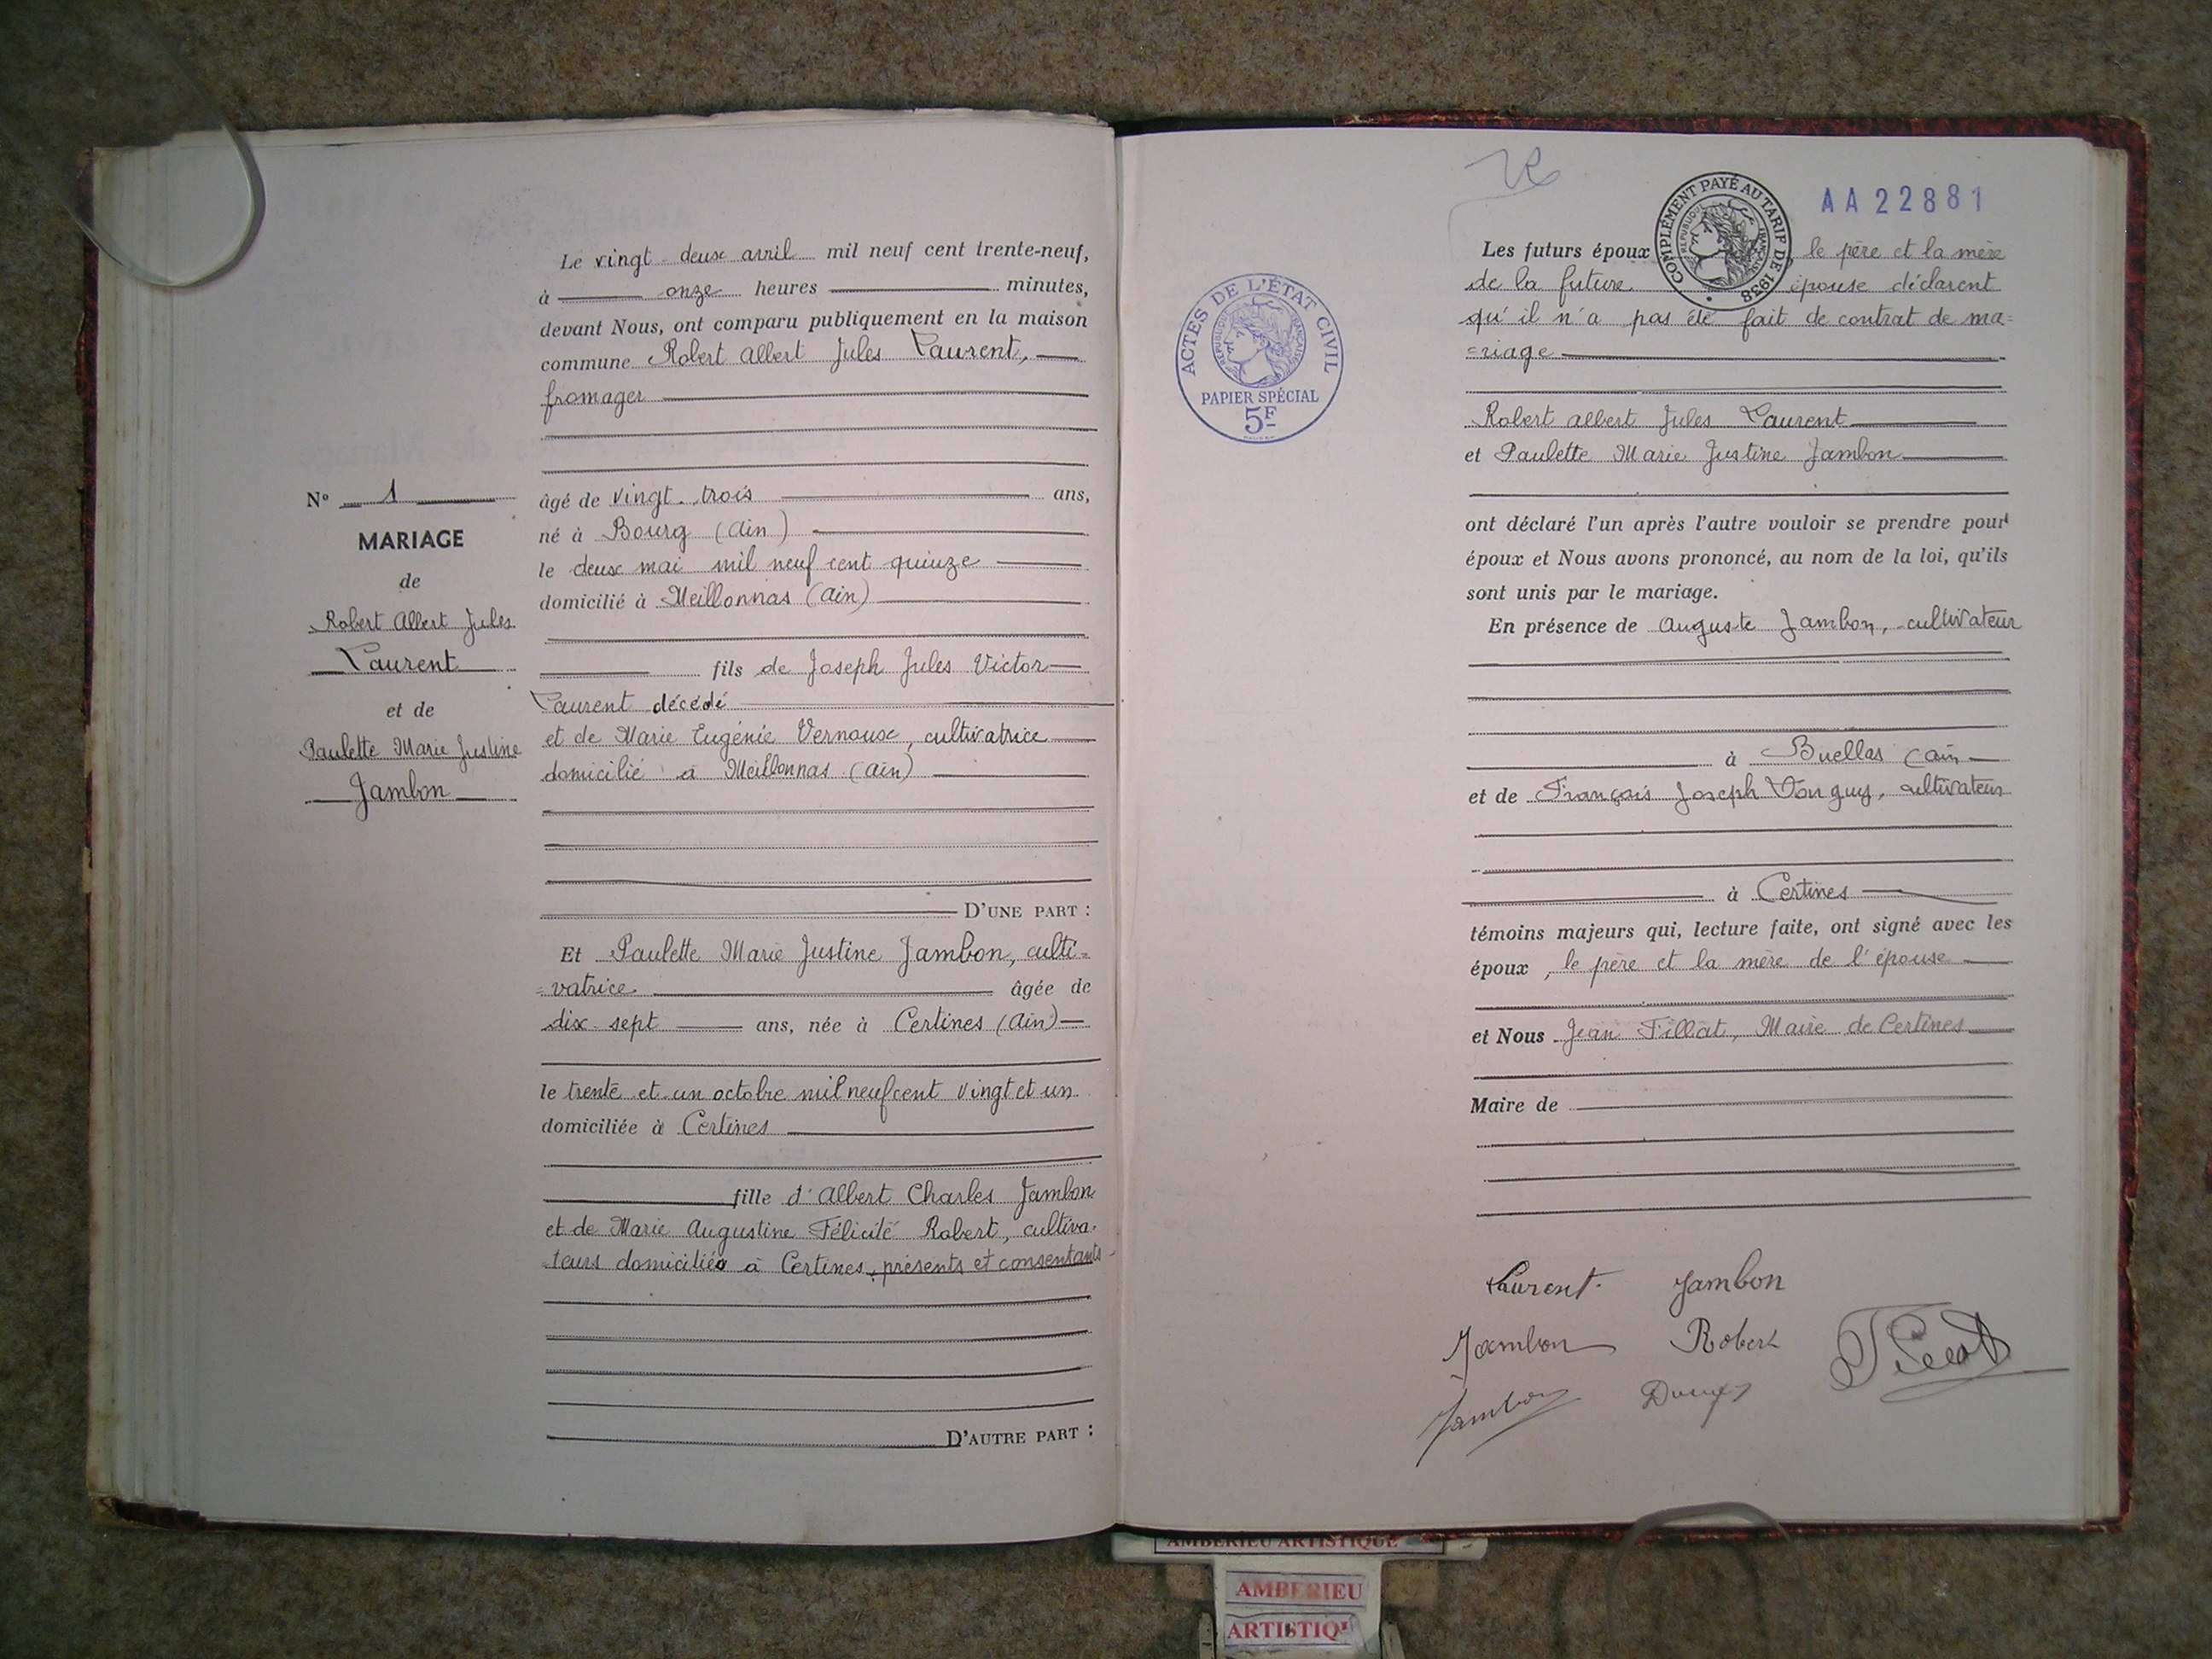 N° 1
MARIAGE
de
Robert Albert Jules
Laurent
et de
Paulette Marie Justine
Jambon
Le vingt-deux avril mil neuf cent trente-neuf,
à onze heures minutes,
devant Nous, ont comparu publiquement en la maison
commune Robert Albert Jules Laurent,
fromager
âgé de vingt-trois ans,
né à Bourg (Ain)
le deux mai mil neuf cent quinze
domicilié à Meillonnas (Ain)
fils de Joseph Jules Victor
Laurent décédé
et de Marie Eugénie Vernoux, cultivatrice
domicilié à Meillonnas (Ain)
D'UNE PART :
Et Paulette Marie Justine Jambon, culti=
=vatrice âgée de
dix sept ans, née à Certines (Ain)
le trente et un octobre mil neuf cent vingt et un
domiciliée à Certines
fille d'Albert Charles Jambon
et de Marie Augustine Félicité Robert, cultiva-
teurs domiciliés à Certines, présents et consentants
D'AUTRE PART :
ACTES DE L'ÉTAT CIVIL
RÉPUBLIQUE FRANÇAISE
PAPIER SPÉCIAL
5F
COMPLÉMENT PAYÉ AU TARIF DE 1938
RÉPUBLIQUE FRANÇAISE
AA22881
Les futurs époux le père et la mère
de la future épouse déclarent
qu'il n'a pas été fait de contrat de ma=
=riage
Robert Albert Jules Laurent
et Paulette Marie Justine Jambon
ont déclaré l'un après l'autre vouloir se prendre pour
époux et Nous avons prononcé, au nom de la loi, qu'ils
sont unis par le mariage.
En présence de Auguste Jambon, cultivateur
à Buellas (Ain
et de François Joseph cultivateur
à Certines
témoins majeurs qui, lecture faite, ont signé avec les
époux, le père et la mère de l'épouse
et Nous Jean Tillat, Maire de Certines
Maire de
Laurent Jambon
Jambon Robert
Jambon
AMBERIEU ARTISTIQUE
AMBERIEU
ARTISTIQ